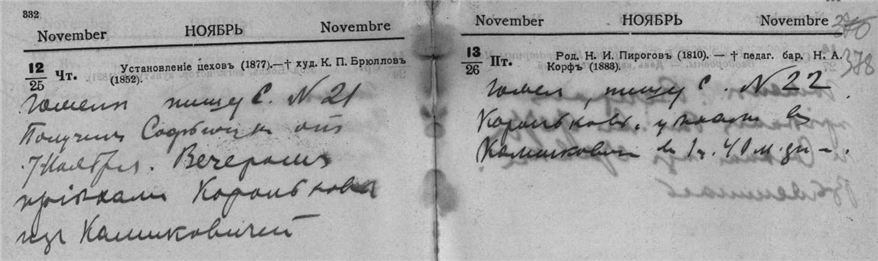 332
November НОЯБРЬ Novembre
12/25 Чт. Установленіе цеховъ (1877).—† худ. К. П. Брюлловъ
(1852).
Гомель пишу С. N 21
Получил от
7 Ноября. Вечером
пріѣхали Корольков
из Калинковичей
November НОЯБРЬ Novembre
378
13/26 Пт. Род. Н. И. Пироговъ (1810). — † педаг. бар. Н. А.
Корфъ (1883).
Гомель, пишу С. N 22
Корольков. уѣхали в
Калинкович в 1 ч. 40 м. дн.